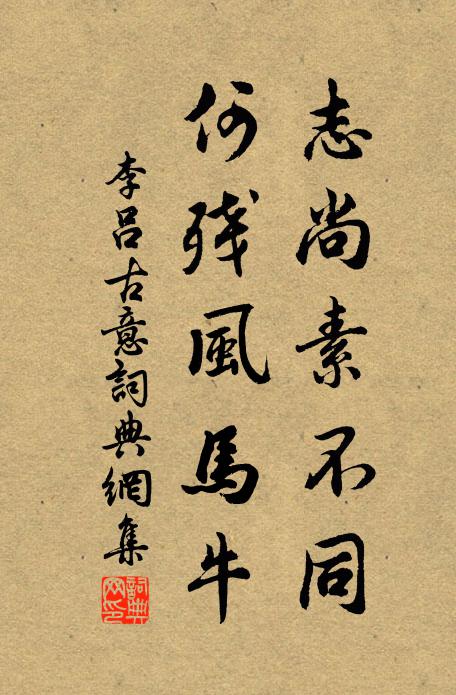 志尚素不同
何残風馬牛
李吕古意詞典網集
詞典网印